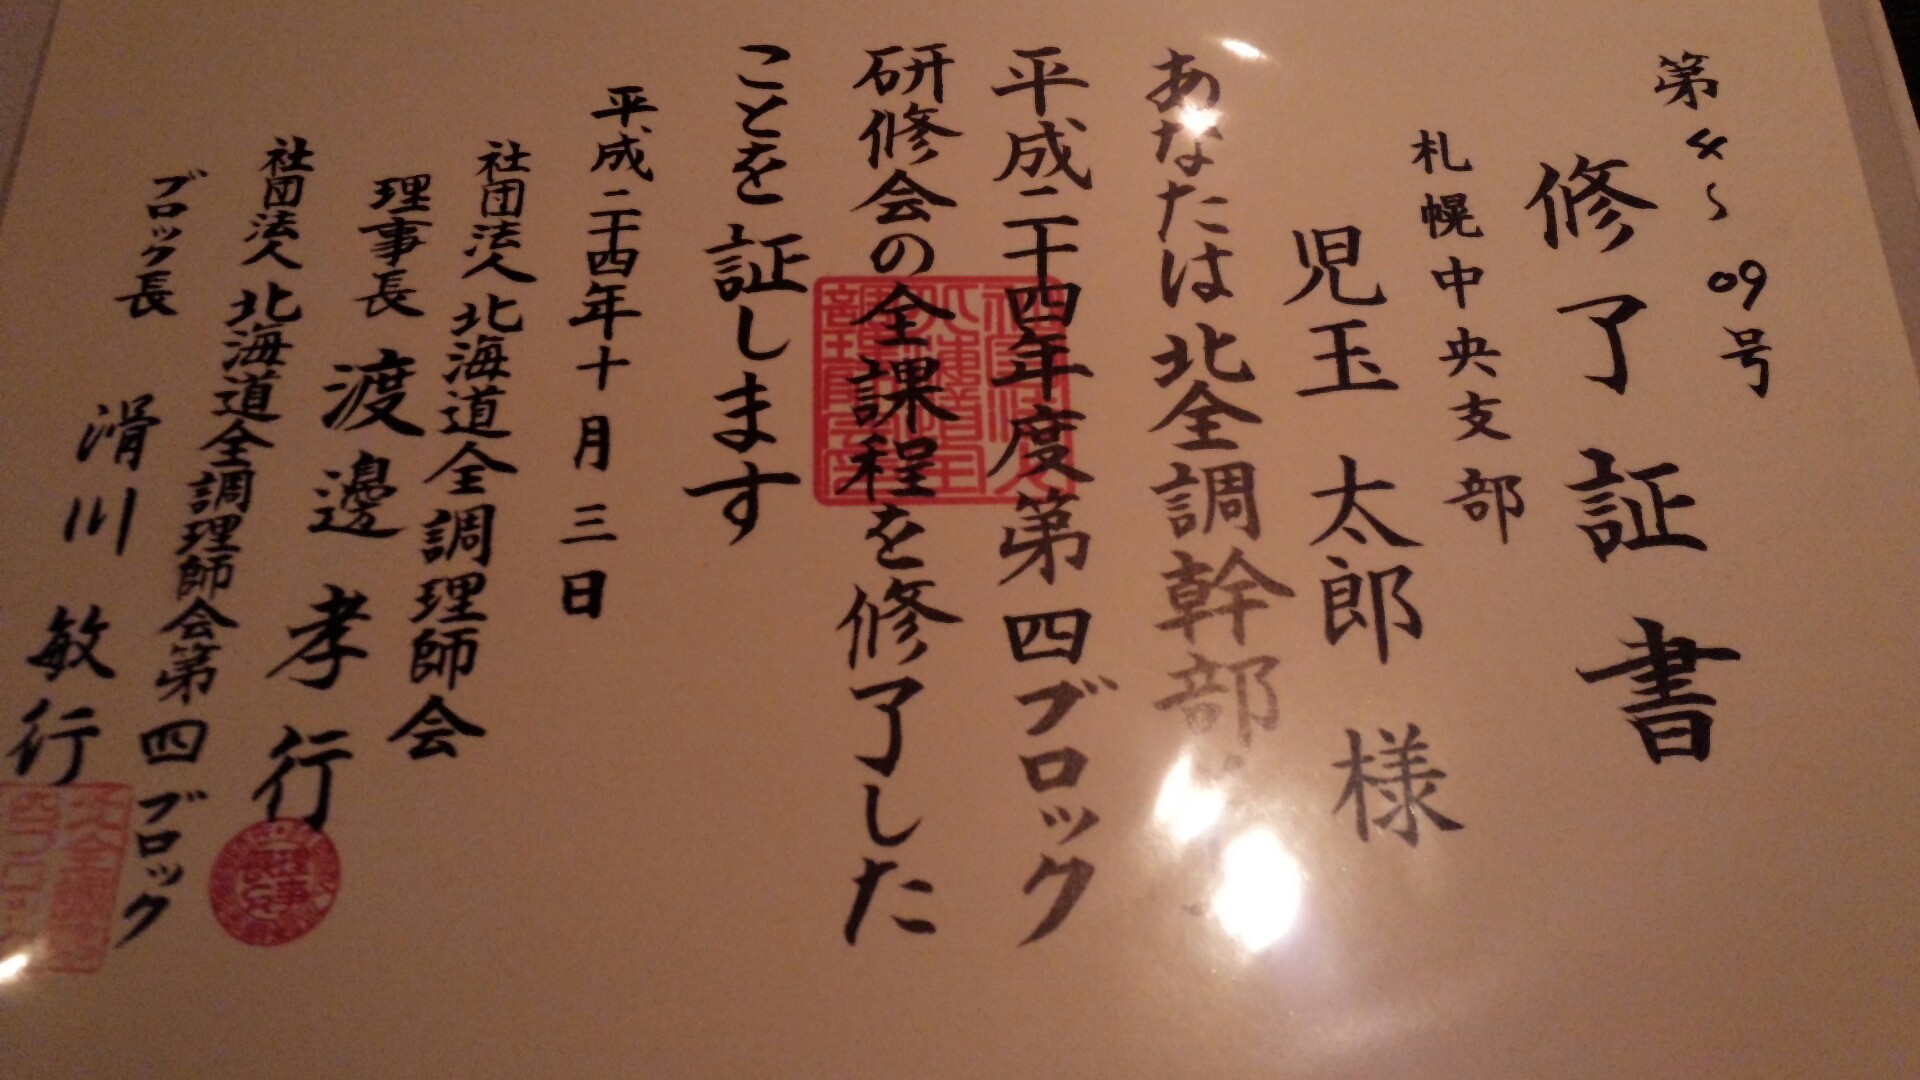 第4〜09号
修了証書
札幌中央支部
児玉太郎様
あなたは北全調幹部
平成二十四年度第四ブロック
研修会の全課程を修了した
ことを証します
平成二十四年十月三日
社団法人北海道全調理師会
理事長 渡邊孝行
社団法人北海道全調理師会第四ブロック
ブロック長 滑川敏行